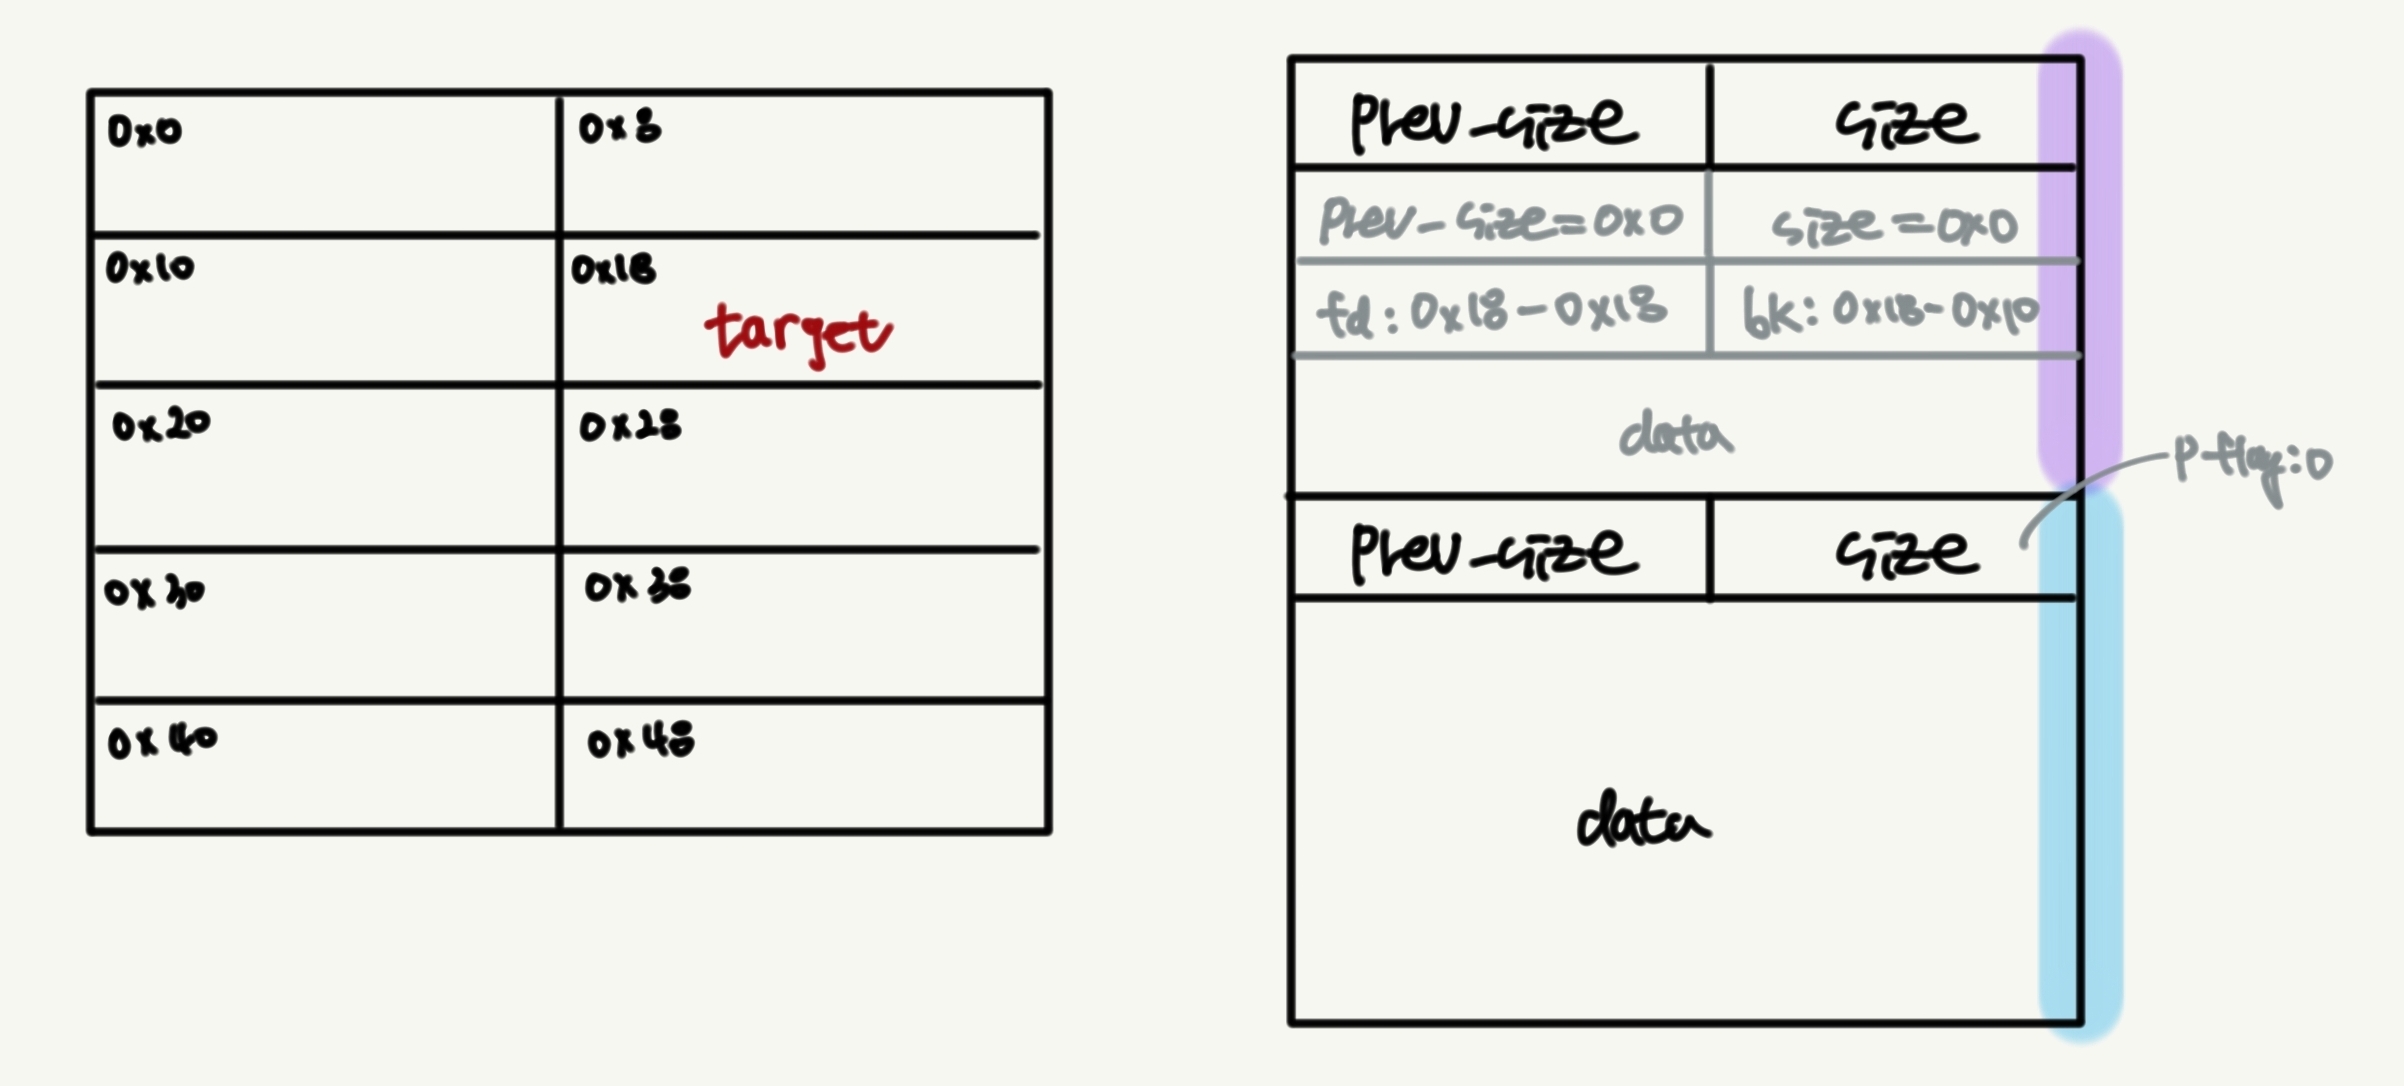 0x0 0x8
0x10 0x18
target
0x20 0x28
0x30 0x38
0x40 0x48
Prev_size size
Prev_size=0x0 size=0x0
fd: 0x18-0x18 bk: 0x18-0x10
data
P-flag:0
Prev_size size
data